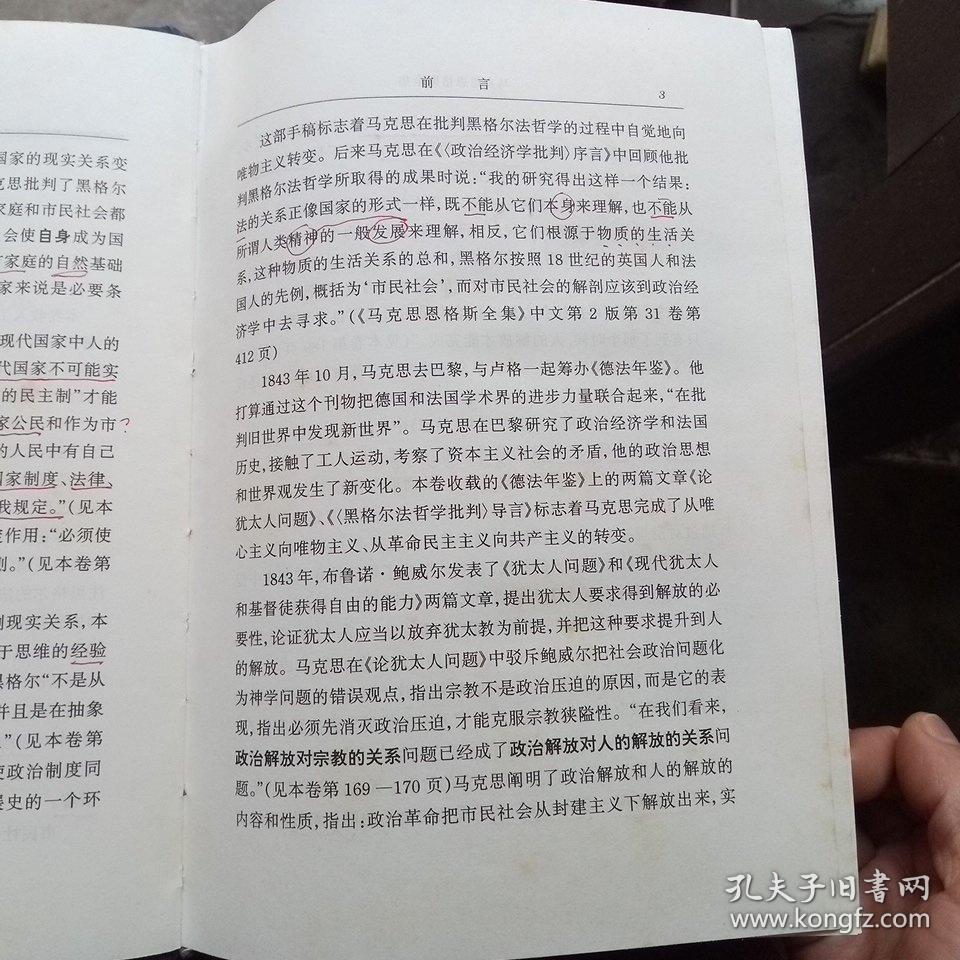 国家的现实关系变
克思批判了黑格尔
家庭和市民社会都
会使自身成为国
家庭的自然基础
家来说是必要条
现代国家中人的
代国家不可能实
的民主制”才能
家公民和作为市
的人民中有自己
国家制度、法律、
我规定。”(见本
作用:“必须使
(见本卷第
现实关系,本
于思维的经验
黑格尔“不是从
并且是在抽象
”(见本卷第
使政治制度同
史的一个环
前 言
3
这部手稿标志着马克思在批判黑格尔法哲学的过程中自觉地向
唯物主义转变。后来马克思在《〈政治经济学批判〉序言》中回顾他批
判黑格尔法哲学所取得的成果时说:“我的研究得出这样一个结果:
法的关系正像国家的形式一样,既不能从它们本身来理解,也不能从
所谓人类精神的一般发展来理解,相反,它们根源于物质的生活关
系,这种物质的生活关系的总和,黑格尔按照 18 世纪的英国人和法
国人的先例,概括为‘市民社会’,而对市民社会的解剖应该到政治经
济学中去寻求。”(《马克思恩格斯全集》中文第 2 版第 31 卷第
412 页)
1843 年 10 月,马克思去巴黎,与卢格一起筹办《德法年鉴》。他
打算通过这个刊物把德国和法国学术界的进步力量联合起来,“在批
判旧世界中发现新世界”。马克思在巴黎研究了政治经济学和法国
历史,接触了工人运动,考察了资本主义社会的矛盾,他的政治思想
和世界观发生了新变化。本卷收载的《德法年鉴》上的两篇文章《论
犹太人问题》、《〈黑格尔法哲学批判〉导言》标志着马克思完成了从唯
心主义向唯物主义、从革命民主主义向共产主义的转变。
1843 年,布鲁诺·鲍威尔发表了《犹太人问题》和《现代犹太人
和基督徒获得自由的能力》两篇文章,提出犹太人要求得到解放的必
要性,论证犹太人应当以放弃犹太教为前提,并把这种要求提升到人
的解放。马克思在《论犹太人问题》中驳斥鲍威尔把社会政治问题化
为神学问题的错误观点,指出宗教不是政治压迫的原因,而是它的表
现,指出必须先消灭政治压迫,才能克服宗教狭隘性。“在我们看来,
政治解放对宗教的关系问题已经成了政治解放对人的解放的关系问
题。”(见本卷第 169—170 页)马克思阐明了政治解放和人的解放的
内容和性质,指出:政治革命把市民社会从封建主义下解放出来,实
孔夫子旧書网
www.kongfz.com